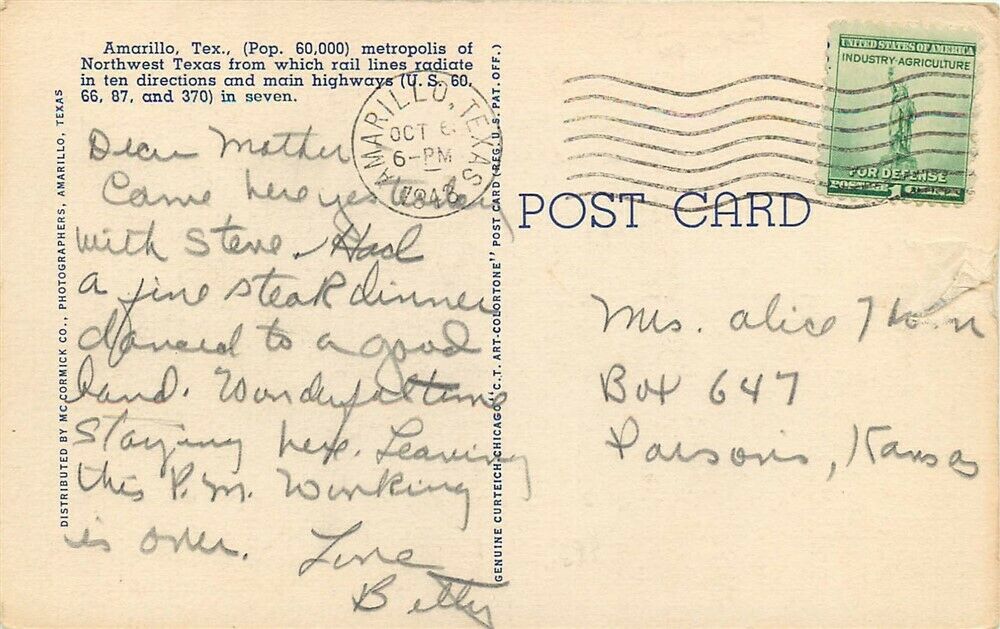 Amarillo, Tex., (Pop. 60,000) metropolis of
Northwest Texas from which rail lines radiate
in ten directions and main highways (U. S. 60,
66, 87, and 370) in seven.
DISTRIBUTED BY MC CORMICK CO., PHOTOGRAPHERS, AMARILLO, TEXAS
Dear Mother
Came here yesterday
with Steve. Had
a fine steak dinner
danced to a good
band. Wonderful time
Staying here. Leaving
this P.M. Working
is over. Love
Betty
GENUINE CURTEICH-CHICAGO "C.T. ART-COLORTONE" POST CARD (REG. U.S. PAT. OFF.)
AMARILLO, TEXAS
OCT 6
6-PM
1942
UNITED STATES OF AMERICA
INDUSTRY-AGRICULTURE
FOR DEFENSE
POST CARD
Mrs. Alice
Box 647
Parsons, Kansas